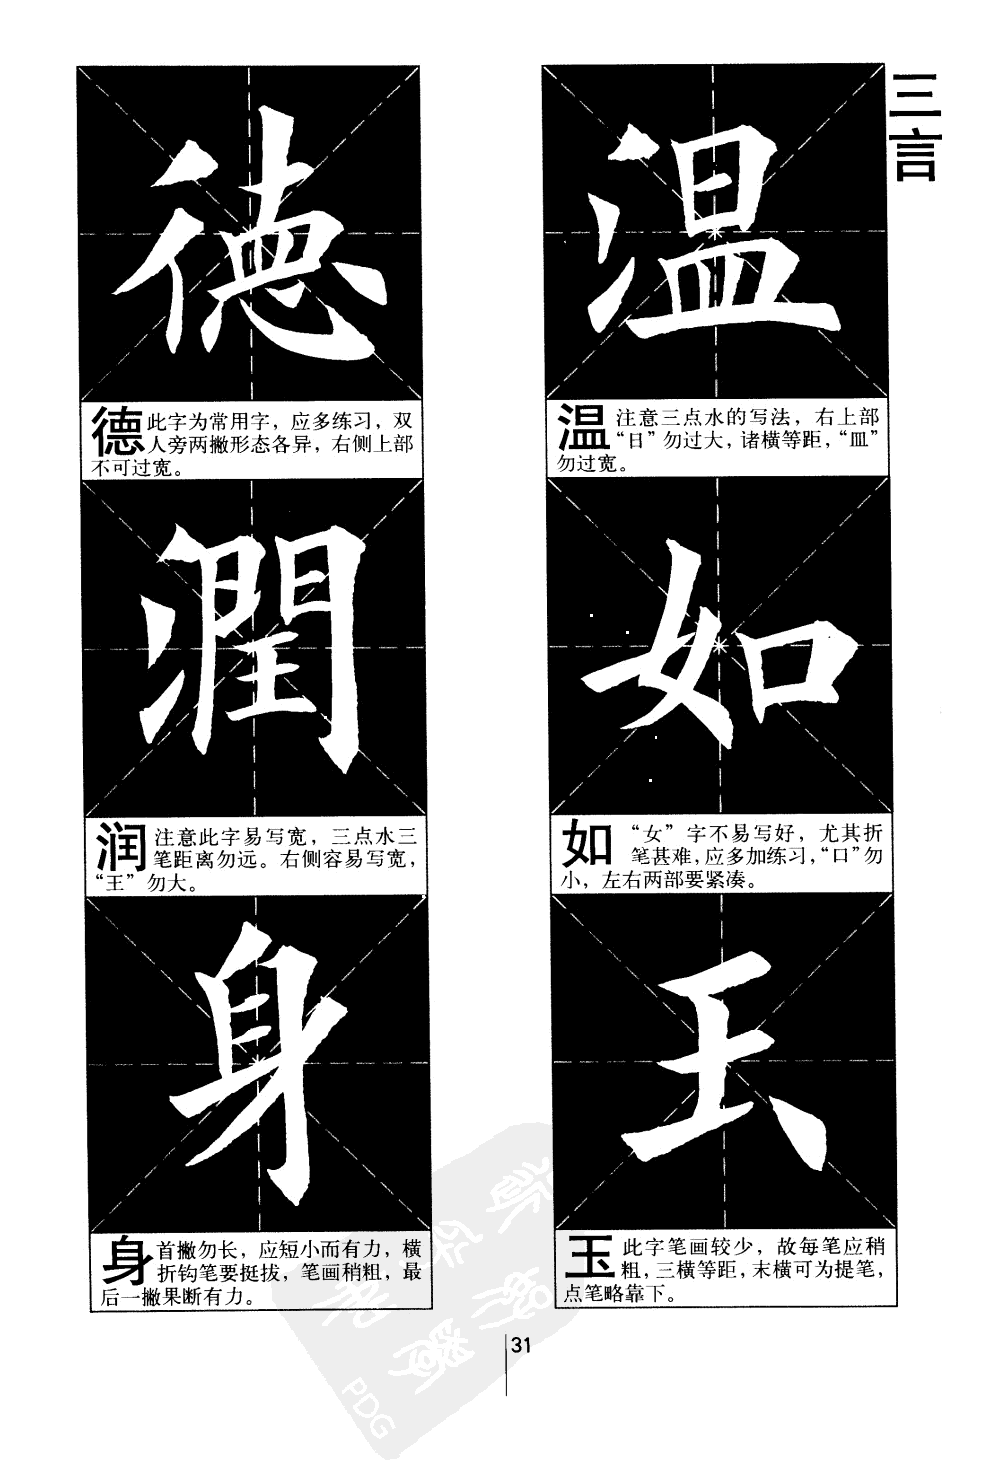 三言
温
温 注意三点水的写法，右上部
“日”勿过大，诸横等距，“皿”
勿过宽。
如
如 “女”字不易写好，尤其折
笔甚难，应多加练习，“口”勿
小，左右两部要紧凑。
玉
玉 此字笔画较少，故每笔应稍
粗，三横等距，末横可为提笔，
点笔略靠下。
德
德 此字为常用字，应多练习，双
人旁两撇形态各异，右侧上部
不可过宽。
潤
润 注意此字易写宽，三点水三
笔距离勿远。右侧容易写宽，
“王”勿大。
身
身 首撇勿长，应短小而有力，横
折钩笔要挺拔，笔画稍粗，最
后一撇果断有力。
31
PDG